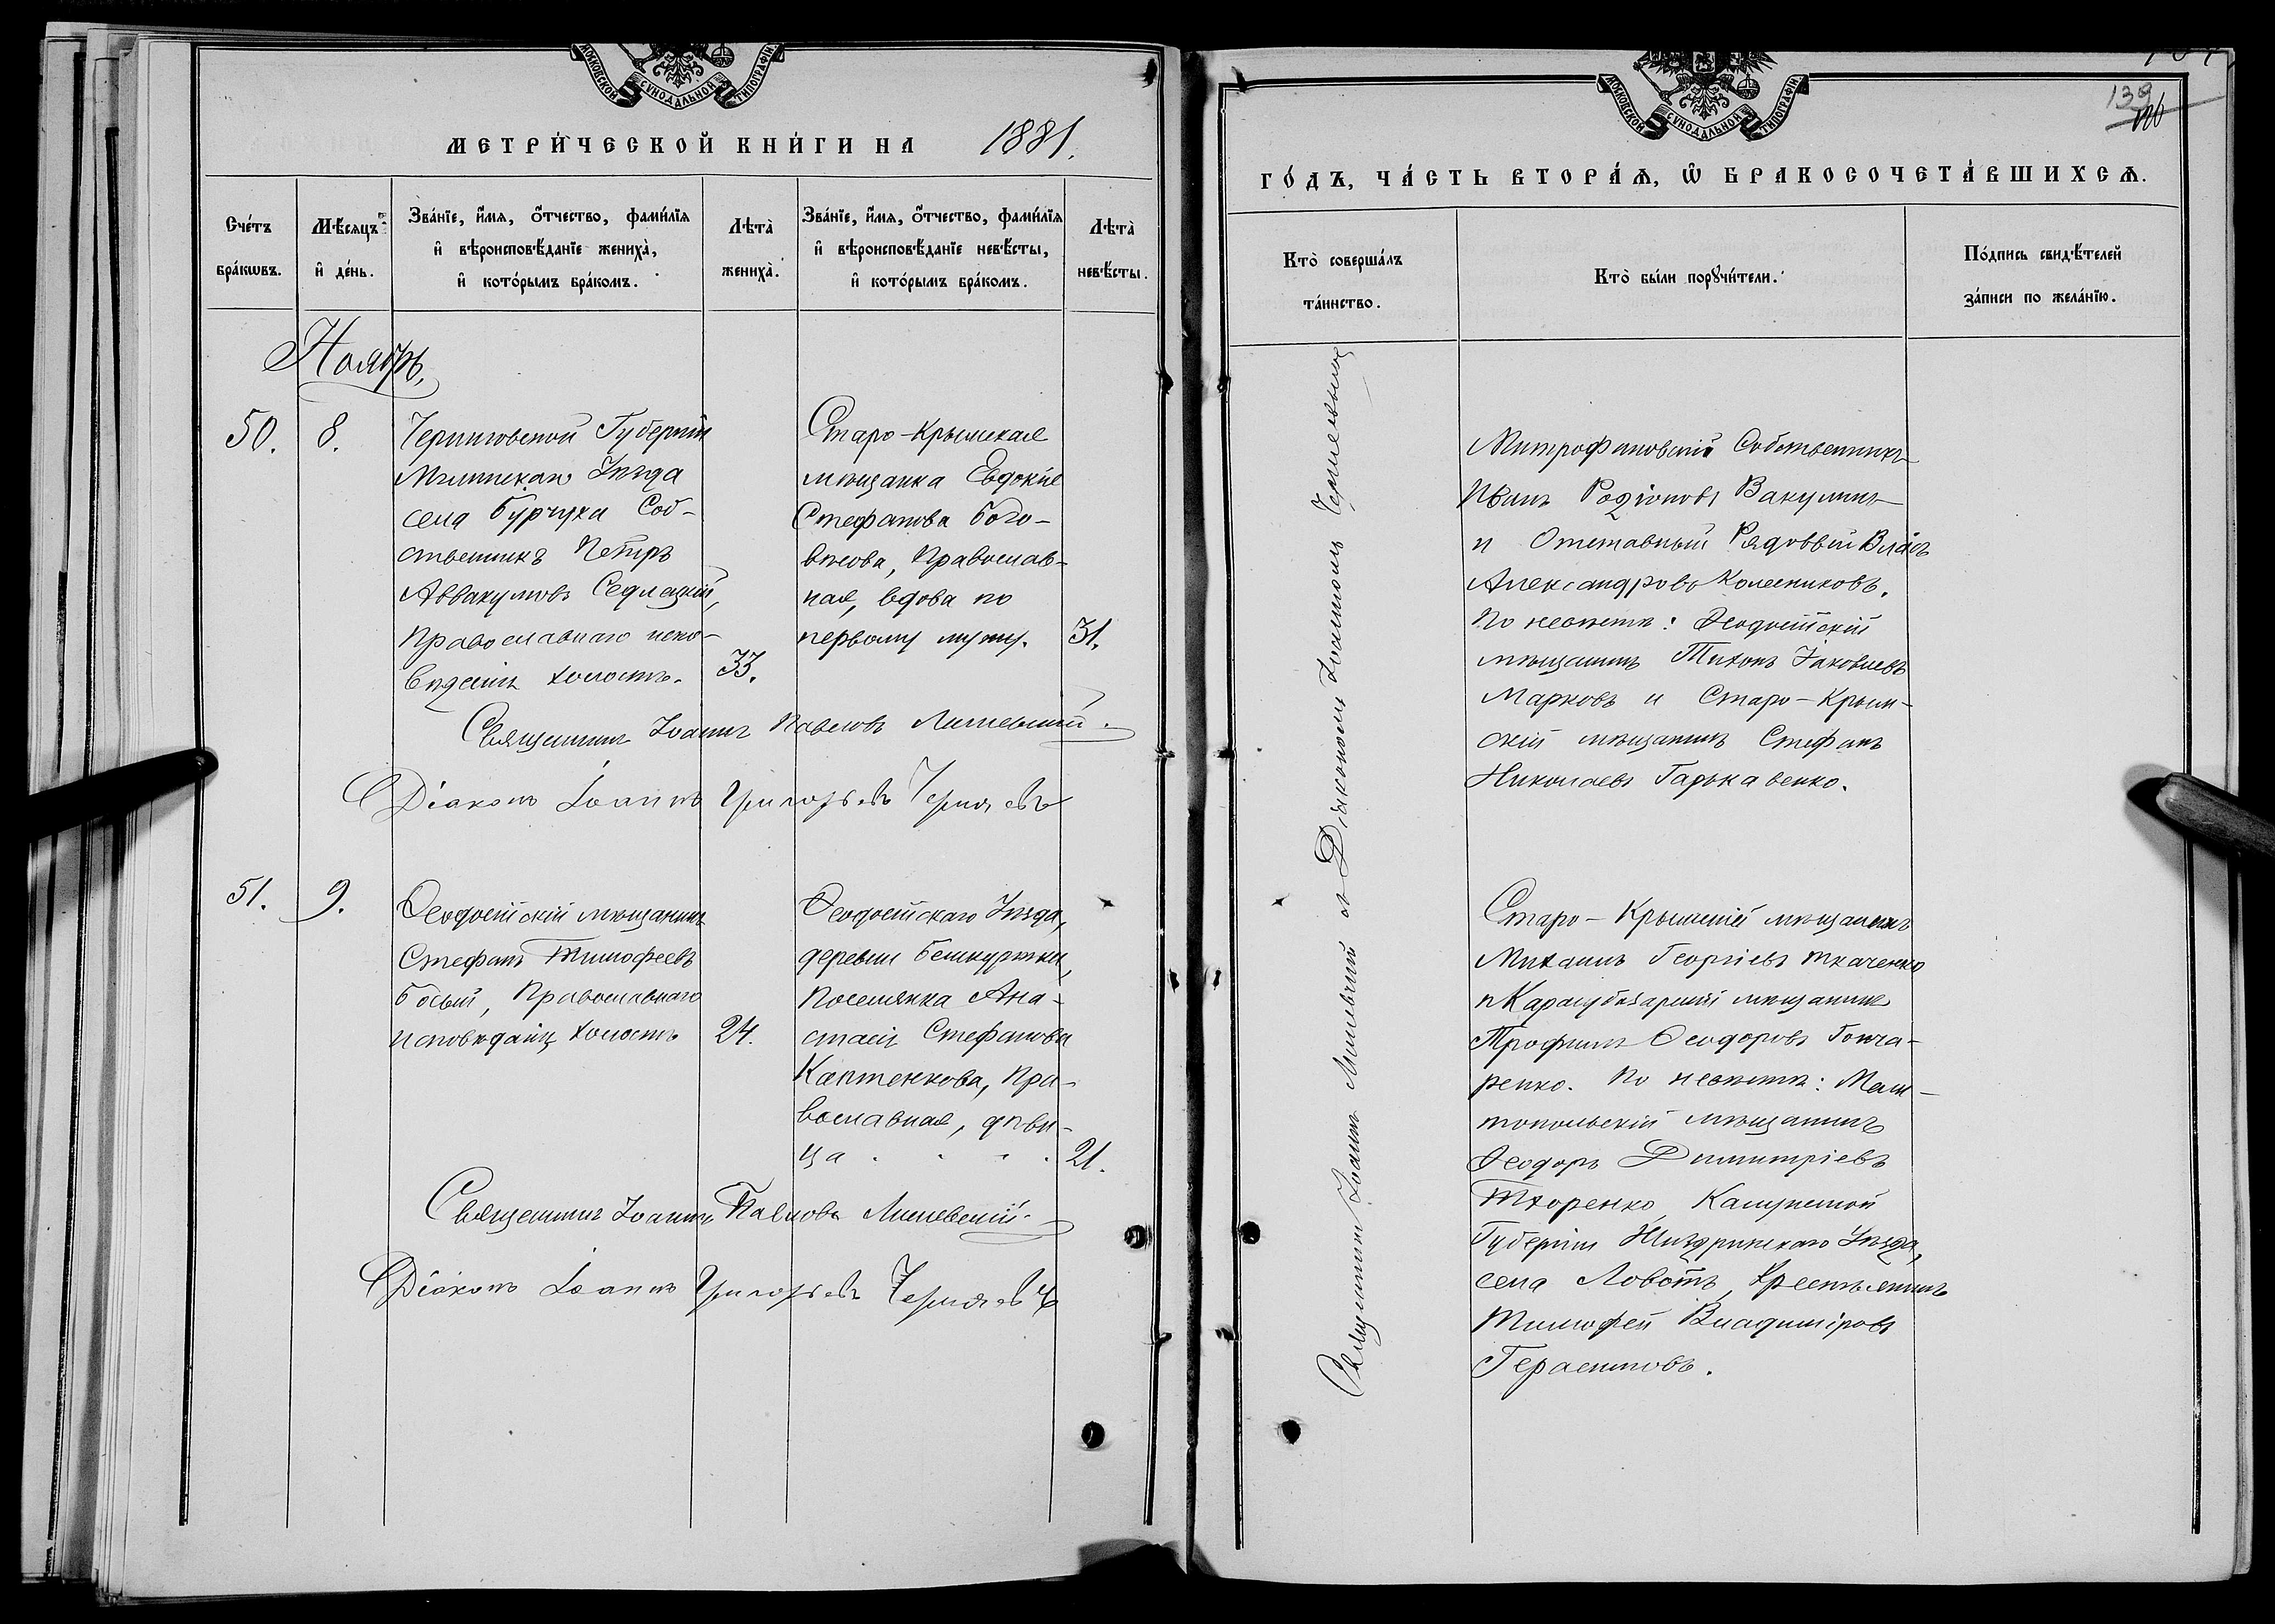 МОСКОВСКОЙ СѴНОДАЛЬНОЙ ТИПОГРАФІИ
МЕТРИ́ЧЕСКОЙ КНИ́ГИ НА 1881.
Сче́тъ бра́кѡвъ.
Мѣ́сяцъ и҆ де́нь.
Зва́нїе, и҆́мѧ, ѻ҆́тчество, фами́лїѧ
и҆ вѣроисповѣ́данїе жениха̀,
и҆ кото́рымъ бра́комъ.
Лѣта̀ жениха̀.
Зва́нїе, и҆́мѧ, ѻ҆́тчество, фами́лїѧ
и҆ вѣроисповѣ́данїе невѣ́сты,
и҆ кото́рымъ бра́комъ.
Лѣта̀ невѣ́сты.
Ноябрь.
50. 8.
Черниговской Губерніи
Мглинскаго Уѣзда
села Бурчука Соб-
ственникъ Петръ
Аввакумовъ Седлецкій,
Православнаго испо-
вѣданія холостъ. 33.
Старо-Крымская
мѣщанка Евдокія
Стефанова Бого-
, Православ-
ная, вдова по
первому мужу. 31.
Священникъ Іоаннъ Павловъ
Діаконъ Іоаннъ Григорьевъ Черняевъ
51. 9.
Ѳеодосійскій мѣщанинъ
Стефанъ Тимофеевъ
Босый, Православнаго
исповѣданія холостъ 24.
Ѳеодосійскаго Уѣзда,
деревни Бешкуртки,
поселянка Ана-
стасія Стефанова
Каптенкова, Пра-
вославная, дѣви-
ца . . . . 21.
Священникъ Іоаннъ Павловъ
Діаконъ Іоаннъ Григорьевъ Черняевъ
МОСКОВСКОЙ СѴНОДАЛЬНОЙ ТИПОГРАФІИ
139
ГО́ДЪ, ЧА́СТЬ ВТОРА́Ѧ, Ѽ БРАКОСОЧЕТА́ВШИХСѦ.
Кто̀ соверша́лъ
та́инство.
Кто̀ бы́ли порꙋчи́тели.
По́дпись свидѣ́телей
за́писи по жела́нїю.
Священникъ Іоаннъ съ Діакономъ Іоанномъ Черняевымъ
Митрофановскій Собственникъ
Иванъ Родіоновъ Вакулинъ
и Отставный Рядовый Власъ
Александровъ Колесниковъ.
По невѣстѣ: Ѳеодосійскій
мѣщанинъ Тихонъ Іаковлевъ
Марковъ и Старо-Крым-
скій мѣщанинъ Стефанъ
Николаевъ Гарькавенко.
Старо-Крымскій мѣщанинъ
Михаилъ Георгіевъ Ткаченко
и Карасубазарскій мѣщанинъ
Трофимъ Ѳеодоровъ Гонча-
ренко. По невѣстѣ: Мели-
топольскій мѣщанинъ
Ѳеодоръ Димитріевъ
Тхоренко, Калужской
Губерніи Жиздринскаго Уѣзда,
села Ловоть, Крестьянинъ
Тимофей Владиміровъ
Герасимовъ.